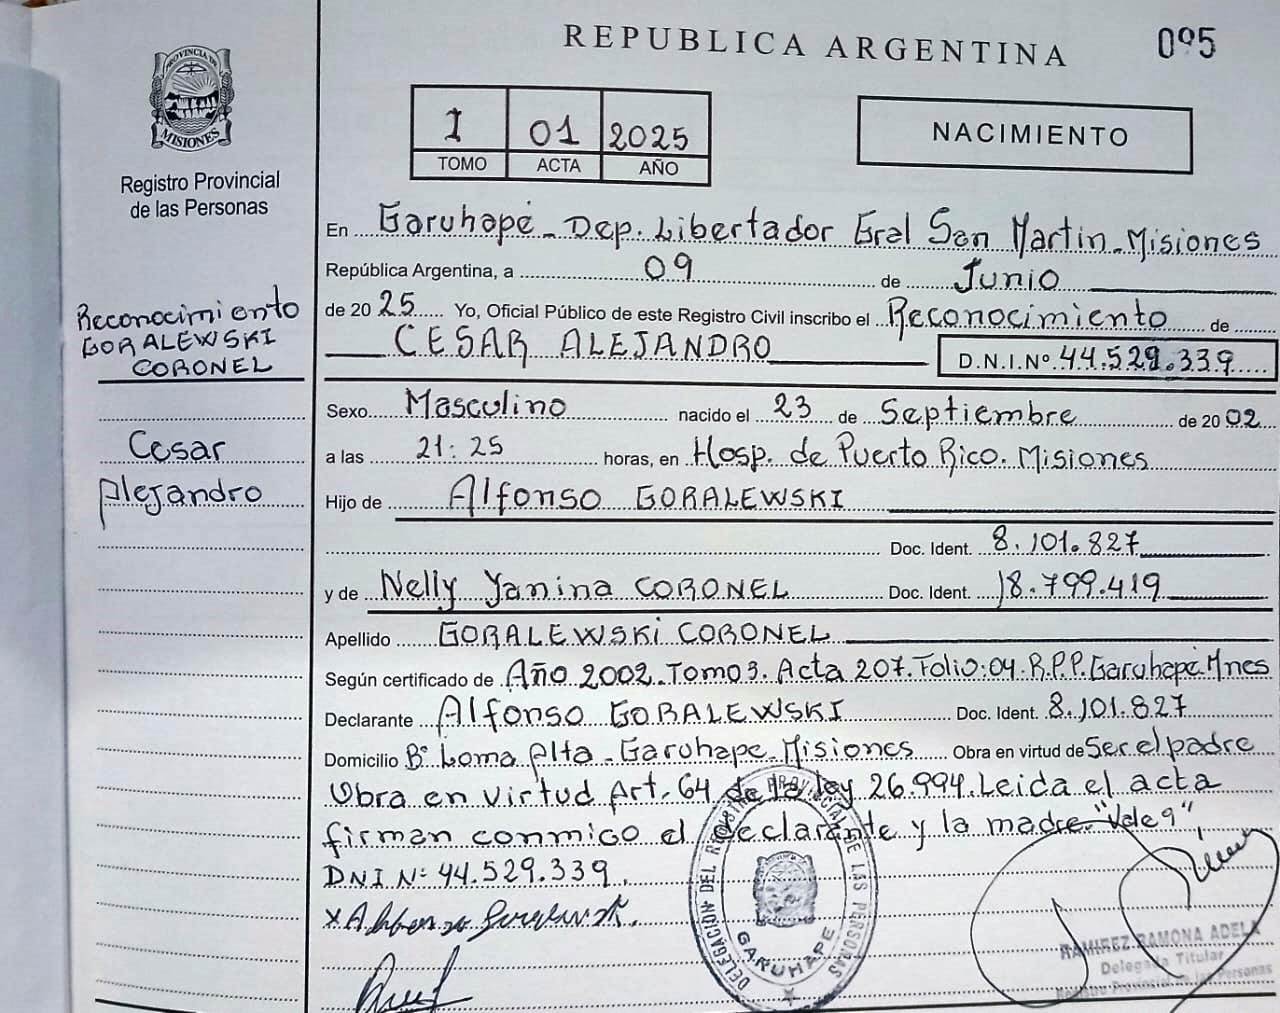 REPUBLICA ARGENTINA
095
PROVINCIA DE
MISIONES
Registro Provincial
de las Personas
I 01 2025
TOMO ACTA AÑO
NACIMIENTO
Reconocimiento
GORALEWSKI
CORONEL
Cesar
Alejandro
En Garuhapé - Dep. Libertador Gral San Martin - Misiones
República Argentina, a 09 de Junio
de 20 25 Yo, Oficial Público de este Registro Civil inscribo el Reconocimiento de
CESAR ALEJANDRO D.N.I.Nº 44.529.339
Sexo Masculino nacido el 23 de Septiembre de 20 02
a las 21:25 horas, en Hosp. de Puerto Rico. Misiones
Hijo de Alfonso GORALEWSKI
Doc. Ident. 8.101.827
y de Nelly Yanina CORONEL Doc. Ident. 18.799.419
Apellido GORALEWSKI CORONEL
Según certificado de Año 2002. Tomo 3. Acta 207. Folio: 04. R.P.P. Garuhapé Mnes
Declarante Alfonso GORALEWSKI Doc. Ident. 8.101.827
Domicilio Bº Loma Alta - Garuhape - Misiones Obra en virtud de Ser el padre
Obra en virtud Art. 64 de la ley 26.994. Leida el acta
firman conmigo el declarante y la madre. "Vale 9"
DNI Nº 44.529.339.
DELEGACIÓN DEL REGISTRO PROVINCIAL DE LAS PERSONAS
GARUHAPE
RAMIREZ RAMONA ADELA
Delegada Titular
Registro Provincial de las Personas